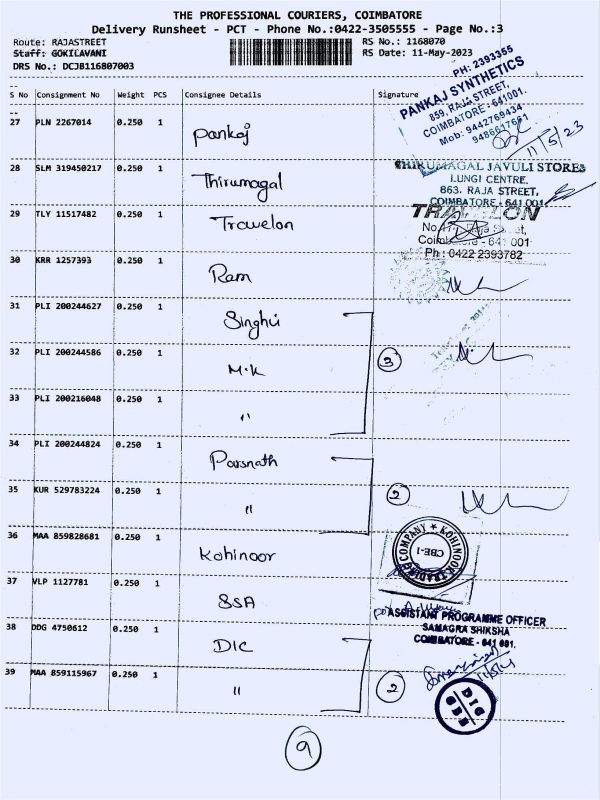 THE PROFESSIONAL COURIERS, COIMBATORE
Delivery Runsheet - PCT - Phone No.:0422-3505555 - Page No.:3
Route: RAJASTREET RS No.: 1168070
Staff: GOKILAVANI RS Date: 11-May-2023
DRS No.: DCJB116807003
PH: 2393355
PANKAJ SYNTHETICS
859, RAJA STREET,
COIMBATORE - 641001.
Mob: 9442769434
11/5/23
S No Consignment No Weight PCS Consignee Details Signature
27 PLN 2267014 0.250 1 Pankaj
28 SLM 319450217 0.250 1 Thirumagal
THIRUMAGAL JAVULI STORES
LUNGI CENTRE,
863, RAJA STREET,
COIMBATORE - 641 001
29 TLY 11517482 0.250 1 Travelon
TRAVELON
Coimbatore - 641 001
Ph : 0422 2393782
30 KRR 1257393 0.250 1 Ram
31 PLI 200244627 0.250 1 Singhvi
32 PLI 200244586 0.250 1 M.K
3
33 PLI 200216048 0.250 1 "
34 PLI 200244824 0.250 1 Parsnath
35 KUR 529783224 0.250 1 "
2
36 MAA 859828681 0.250 1 Kohinoor
KOHINOOR TRADING COMPANY
CBE-1
37 VLP 1127781 0.250 1 SSA
ASSISTANT PROGRAMME OFFICER
SAMAGRA SHIKSHA
COIMBATORE - 641 001.
38 DDG 4750612 0.250 1 DIC
39 MAA 859115967 0.250 1 "
2
DIC
CBE
9